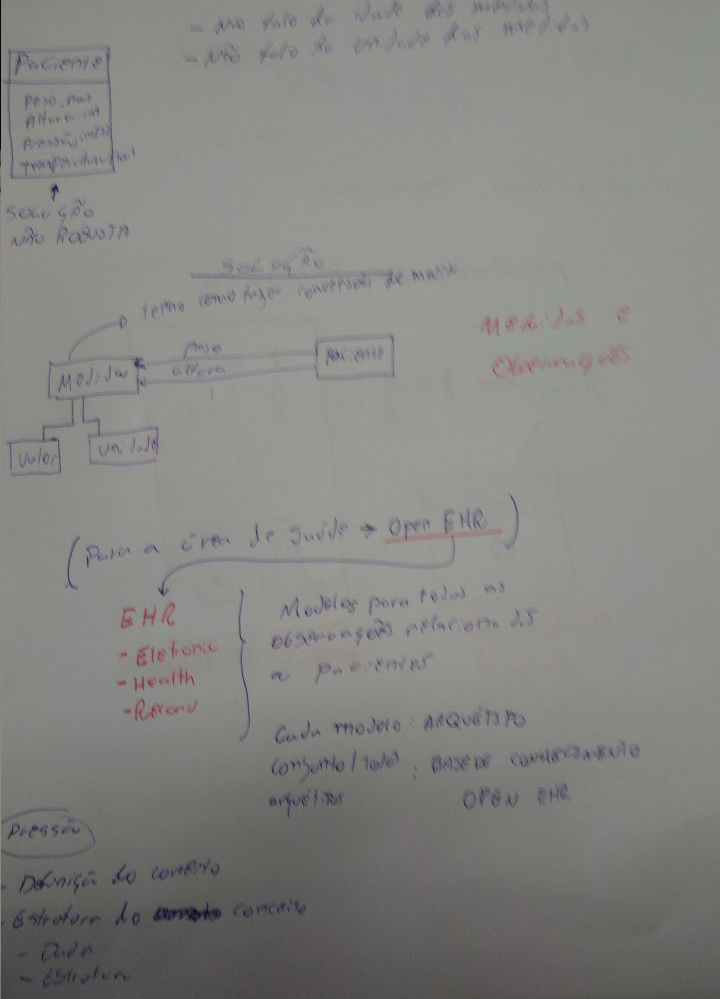 - Não falo da idade das medidas
- Não falo da unidade das medidas
Paciente
Peso: int
Altura: int
Pressão: int
Temperatura: int
SOLUÇÃO
NÃO ROBUSTA
SOLUÇÃO
tenho como fazer conversões de
peso
altura
Medida
Paciente
Valor
Unidade
Medidas e
Observações
(Para a área de Saúde → Open EHR)
EHR
- Eletronic
- Health
- Record
Modelos para todos as
observações relacionadas
a pacientes
Cada modelo: ARQUÉTIPO
conjunto/todos : BASE DE CONHECIMENTO
arquétipos OPEN EHR
Pressão
- Definição do conceito
- Estrutura do conceito
- Dados
- Estrutura